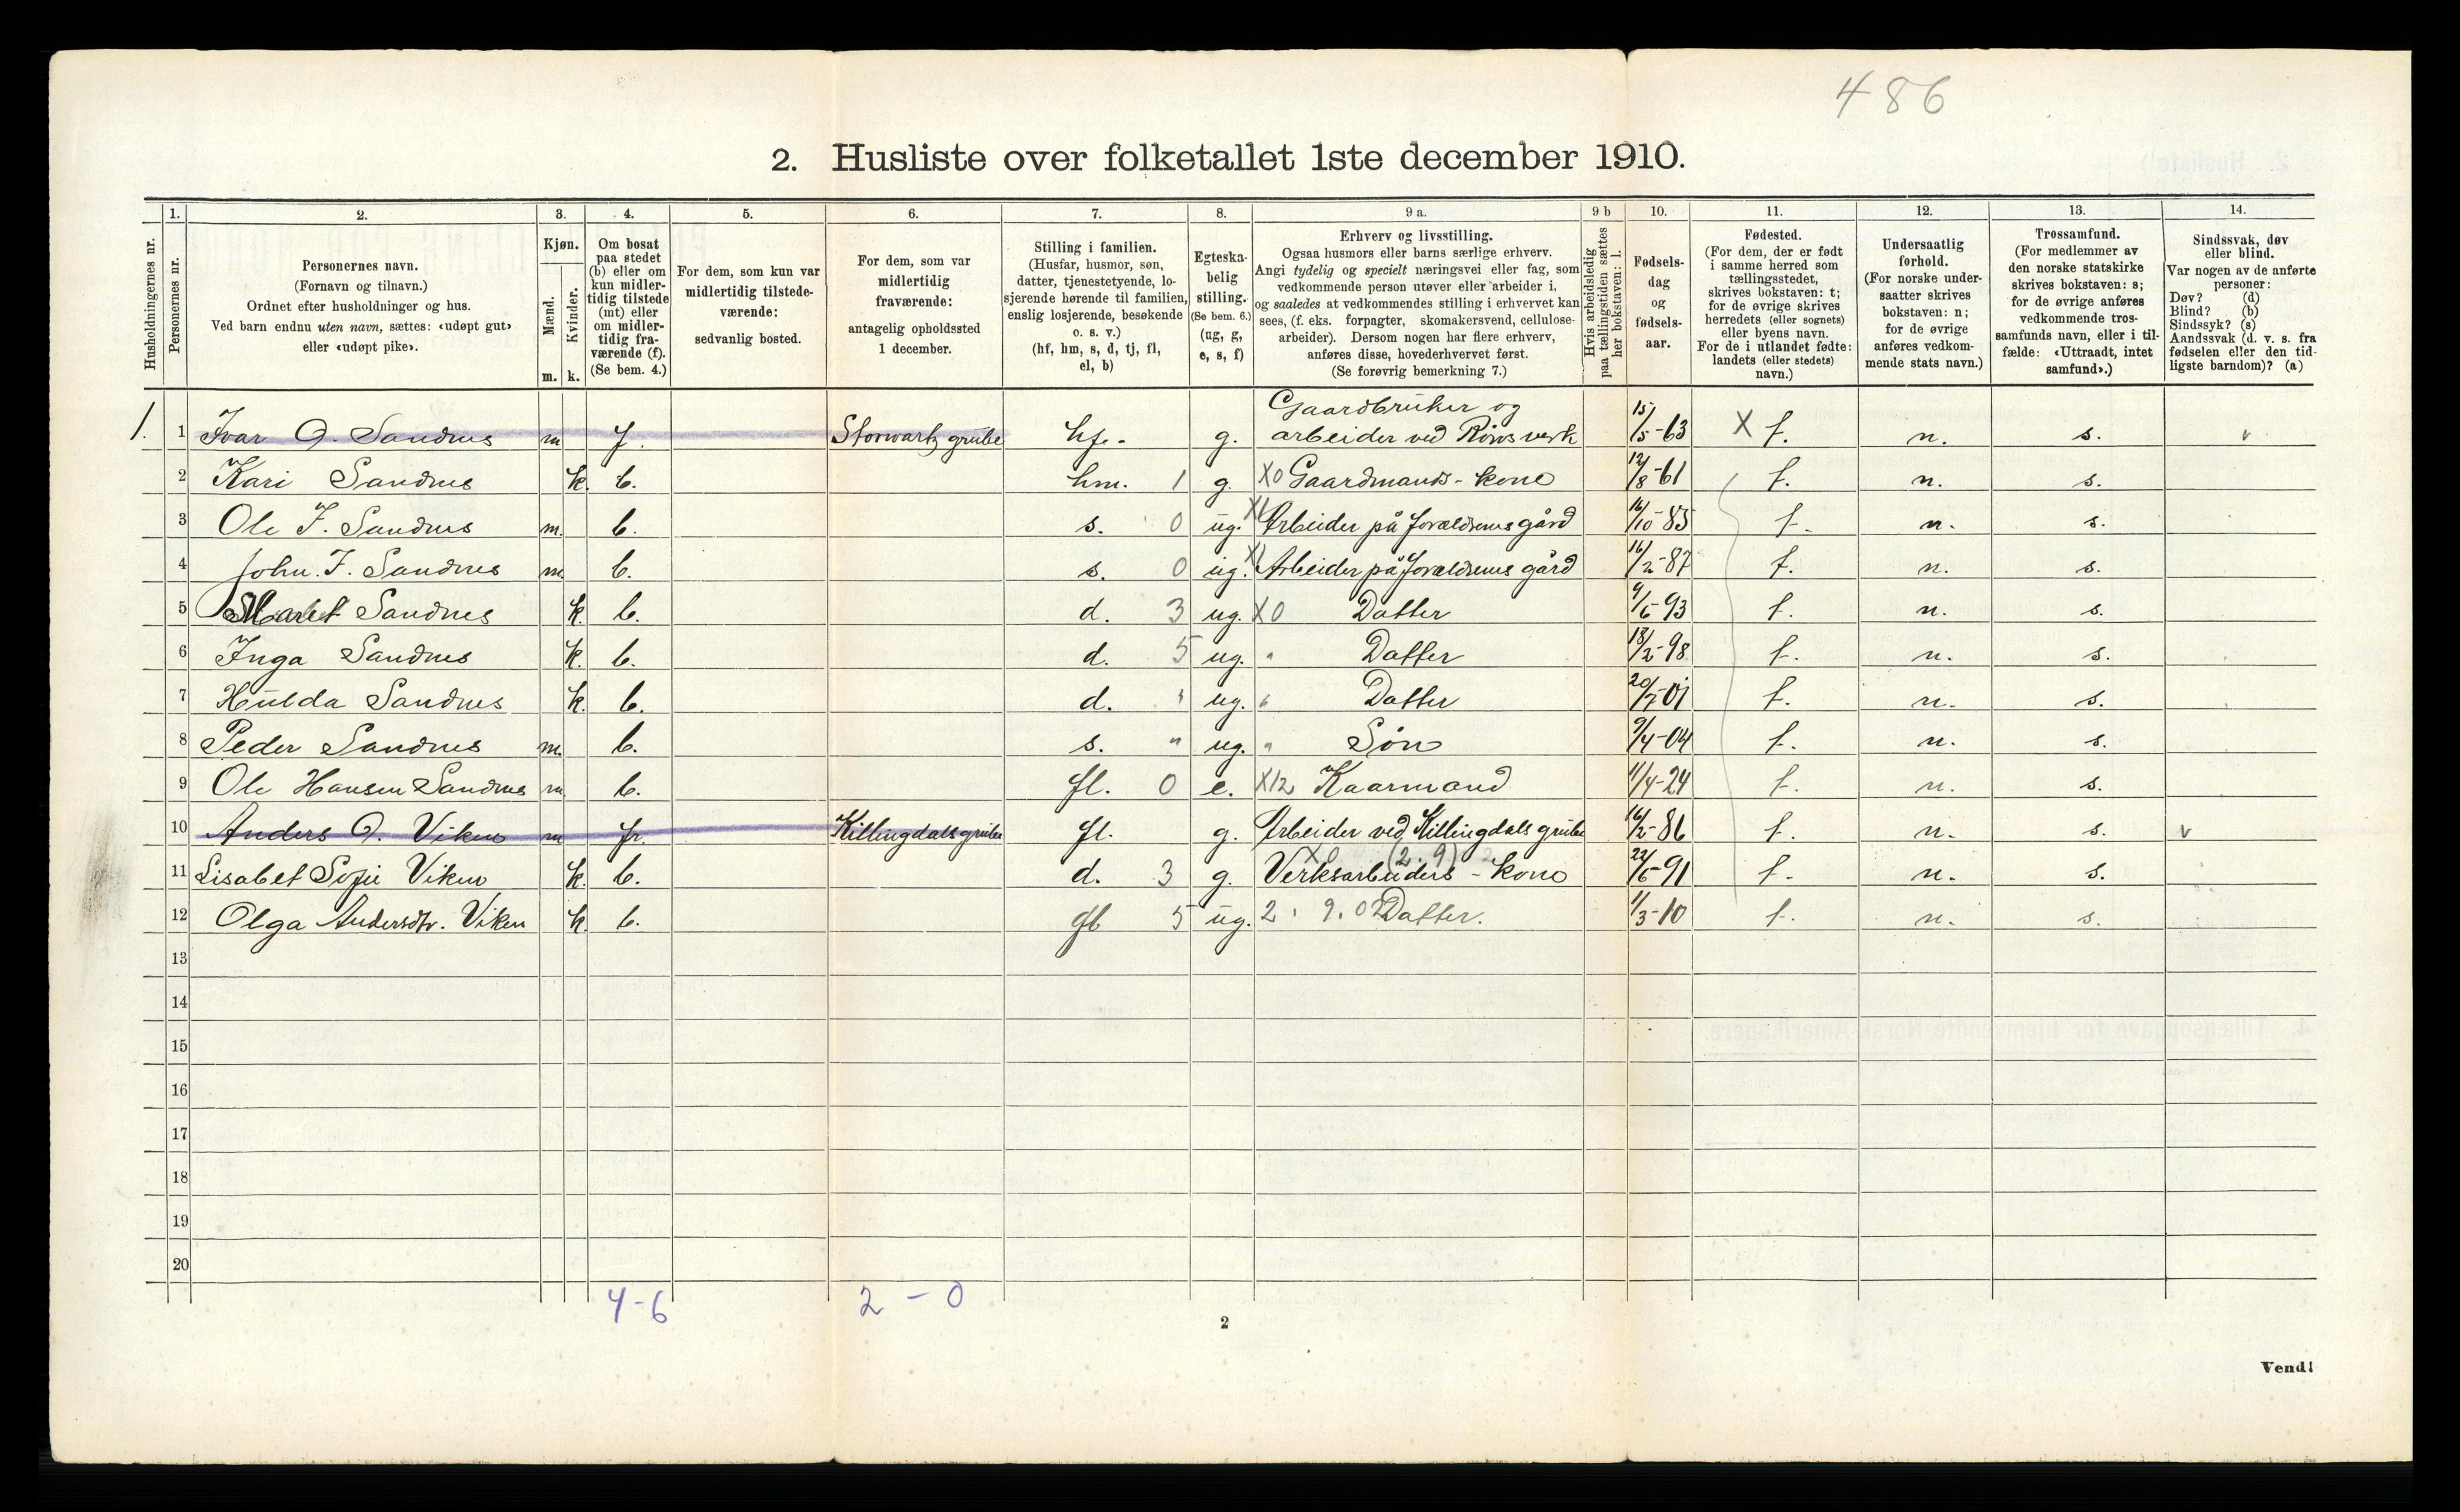 486
2. Husliste over folketallet 1ste december 1910.
Husholdningernes nr.
1. Personernes nr.
2. Personernes navn. (Fornavn og tilnavn.) Ordnet efter husholdninger og hus. Ved barn endnu uten navn, sættes: «udøpt gut» eller «udøpt pike».
3. Kjøn. Mænd. m. Kvinder. k.
4. Om bosat paa stedet (b) eller om kun midlertidig tilstede (mt) eller om midlertidig fraværende (f). (Se bem. 4.)
5. For dem, som kun var midlertidig tilstedeværende: sedvanlig bosted.
6. For dem, som var midlertidig fraværende: antagelig opholdssted 1 december.
7. Stilling i familien. (Husfar, husmor, søn, datter, tjenestetyende, losjerende hørende til familien, enslig losjerende, besøkende o. s. v.) (hf, hm, s, d, tj, fl, el, b)
8. Egteskabelig stilling. (Se bem. 6.) (ug, g, e, s, f)
9 a. Erhverv og livsstilling. Ogsaa husmors eller barns særlige erhverv. Angi tydelig og specielt næringsvei eller fag, som vedkommende person utøver eller arbeider i, og saaledes at vedkommendes stilling i erhvervet kan sees, (f. eks. forpagter, skomakersvend, cellulosearbeider). Dersom nogen har flere erhverv, anføres disse, hovederhvervet først. (Se forøvrig bemerkning 7.)
9 b Hvis arbeidsledig paa tællingstiden sættes her bokstaven: l.
10. Fødselsdag og fødselsaar.
11. Fødested. (For dem, der er født i samme herred som tællingsstedet, skrives bokstaven: t; for de øvrige skrives herredets (eller sognets) eller byens navn. For de i utlandet fødte: landets (eller stedets) navn.)
12. Undersaatlig forhold. (For norske undersaatter skrives bokstaven: n; for de øvrige anføres vedkommende stats navn.)
13. Trossamfund. (For medlemmer av den norske statskirke skrives bokstaven: s; for de øvrige anføres vedkommende trossamfunds navn, eller i tilfælde: «Uttraadt, intet samfund».)
14. Sindssvak, døv eller blind. Var nogen av de anførte personer: Døv? (d) Blind? (b) Sindssyk? (s) Aandssvak (d. v. s. fra fødselen eller den tidligste barndom)? (a)
1. 1 Ivar O. Sandnes m f. Storwartz grube hf. g. Gaardbruker og arbeider ved Rørosverk 15/5-63 X t. n. s. v
2 Kari Sandnes k. b. hm. 1 g. X0 Gaardmands-kone 12/8-61 t. n. s.
3 Ole I. Sandnes m. b. s. 0 ug. X1 Arbeider på forældrenes gård 16/10-85 t. n. s.
4 John. I. Sandnes m. b. s. 0 ug. X1 Arbeider på forældrenes gård 16/2-87 t. n. s.
5 Maret Sandnes k. b. d. 3 ug. X0 Datter 9/6 93 t. n. s.
6 Inga Sandnes k. b. d. 5 ug. " Datter 18/2-98 t. n. s.
7 Hulda Sandnes k. b. d. " ug. " Datter 20/7-01 t. n. s.
8 Peder Sandnes m. b. s. " ug. " Søn 9/4-04 t. n. s.
9 Ole Hansen Sandnes m. b. fl. 0 e. X12 Kaarmand 11/4-24 t. n. s.
10 Anders O. Viken m fr. Killingdalsgruben fl. g. Arbeider ved Killingdals grube 16/2-86 t. n. s. v
11 Lisabet Sofie Viken k. b. d. 3 g. X0 (2.9) Verksarbeiders-kone 22/6-91 t. n. s.
12 Olga Andersdtr. Viken k. b. fl 5 ug. 2. 9.02 Datter. 1/3-10 t. n. s.
13
14
15
16
17
18
19
20
4-6 2-0
2
Vend!